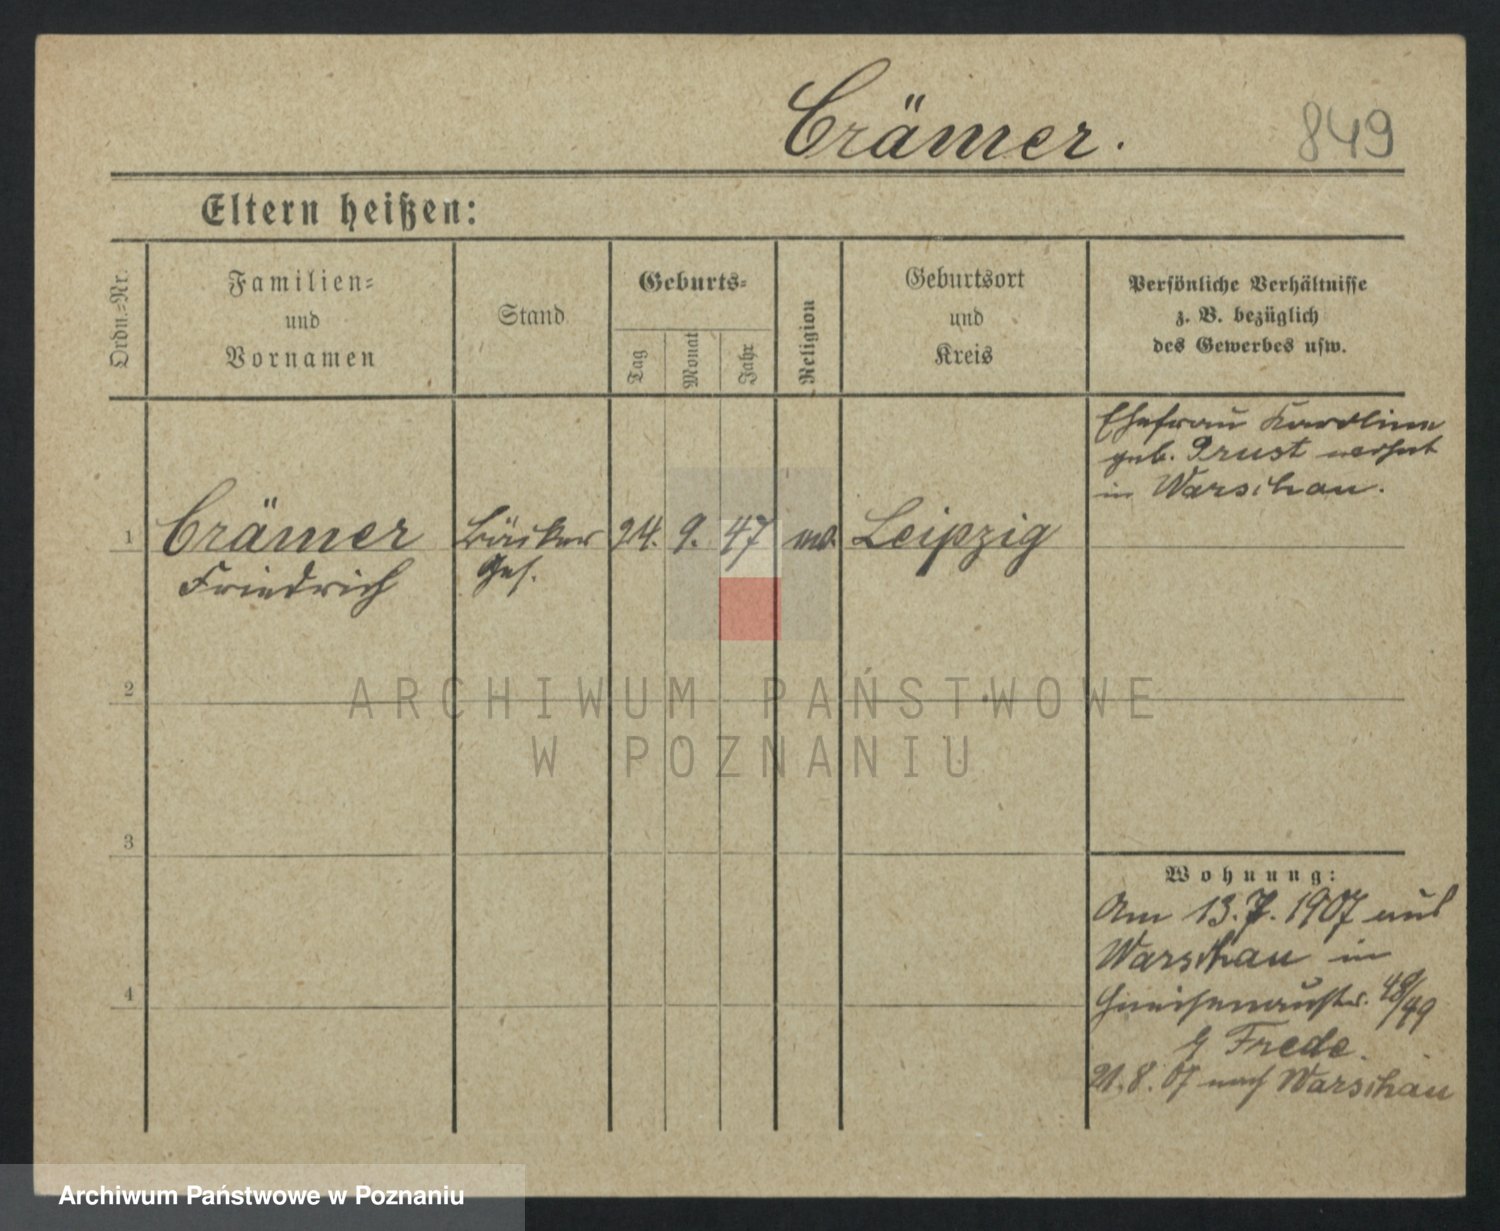 Crämer.
849
Eltern heißen:
Ordn.-Nr.
Familien-
und
Vornamen
Stand
Geburts-
Tag
Monat
Jahr
Religion
Geburtsort
und
Kreis
Persönliche Verhältnisse
z. B. bezüglich
des Gewerbes usw.
Ehefrau Karoline
geb. Prust wohnt
in Warschau.
1
Crämer
Friedrich
Bäcker
Ges.
24.
9.
47
Leipzig
2
3
4
Wohnung:
Am 13. 7. 1907 aus
Warschau in
Gneisenaustr. 48/49
b Frede.
21. 8. 07 nach Warschau
ARCHIWUM PAŃSTWOWE
W POZNANIU
Archiwum Państwowe w Poznaniu